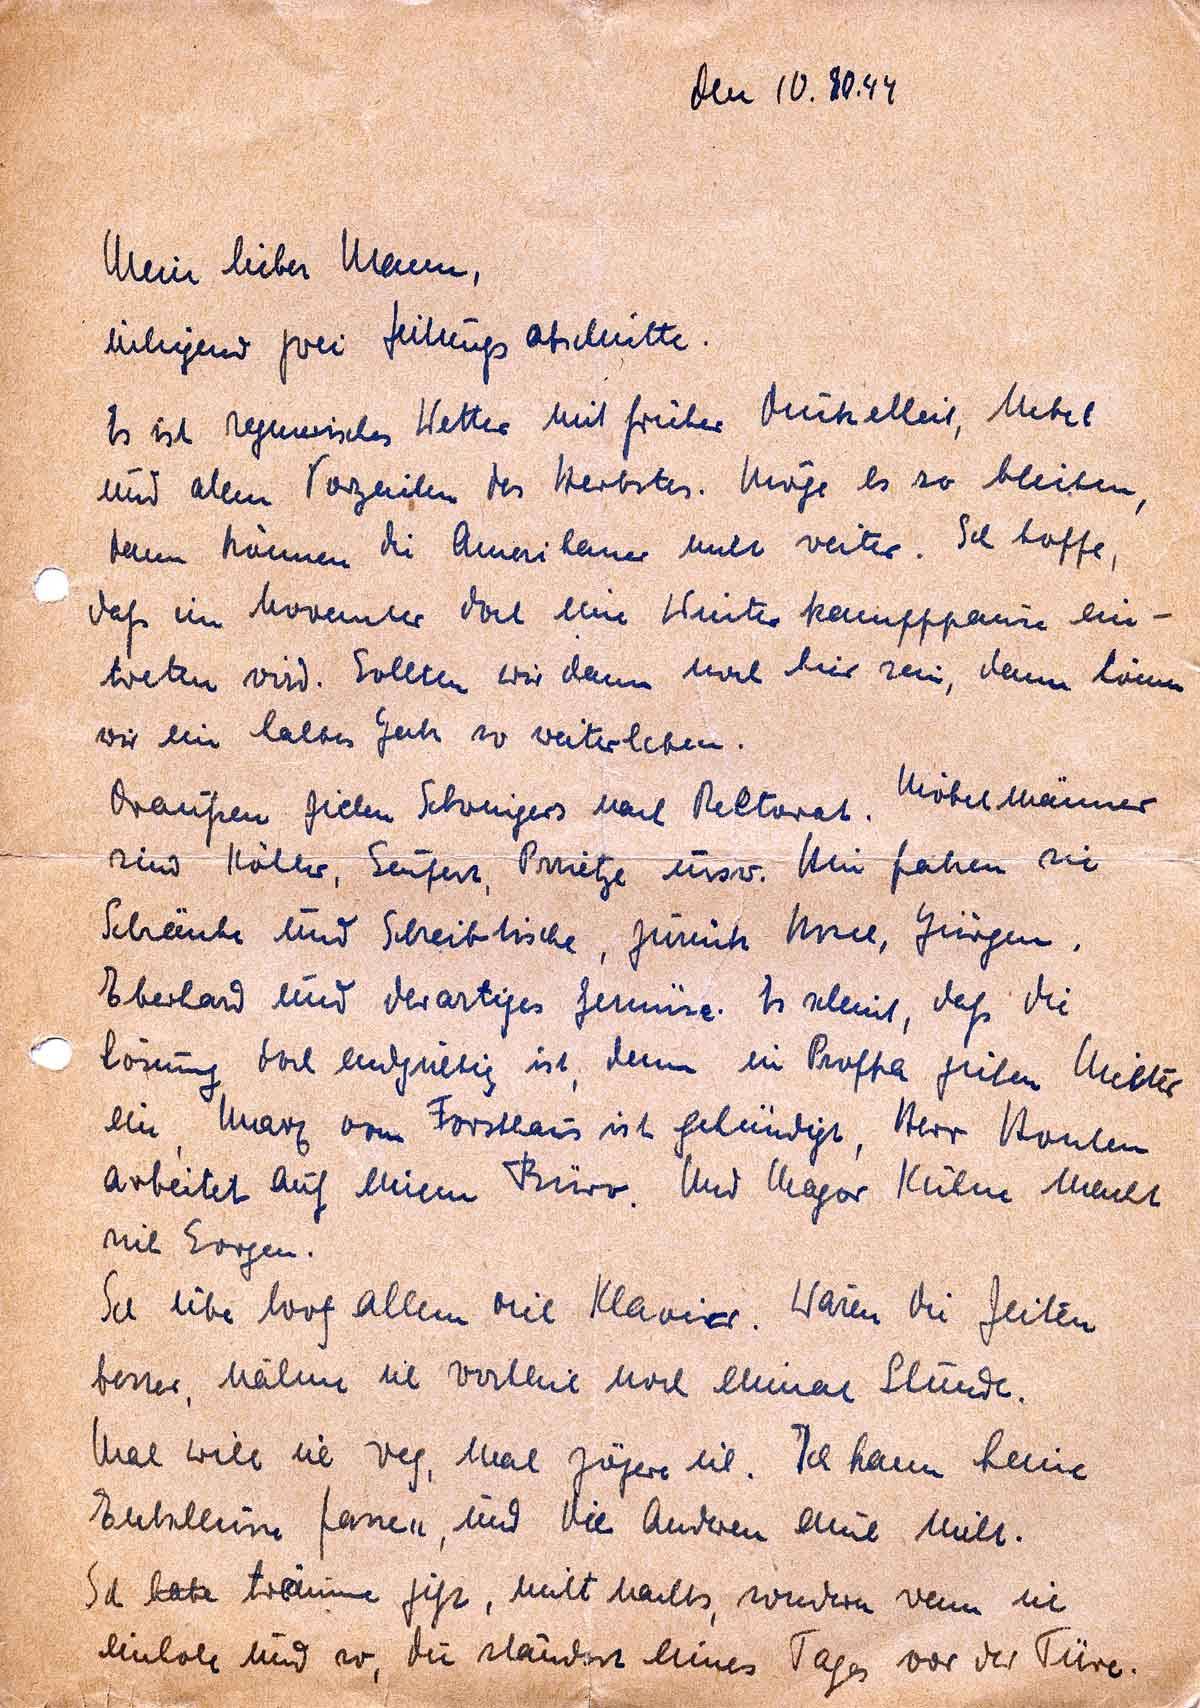 den 10.10.44
Mein lieber Mann,
inliegend zwei Zeitungsabschnitte.
Es ist regnerisches Wetter mit früher Dunkelheit, Nebel
und allen Vorzeichen des Herbstes. Möge es so bleiben,
dann können die Amerikaner nicht weiter. Ich hoffe,
daß im November dort eine Winterkampfpause ein-
treten wird. Sollten wir dann noch hier sein, dann können
wir ein halbes Jahr so weiterleben.
Draußen ziehen Schwigers nach Rektorat. Möbelmänner
sind Köller, Seufert, usw. Hin fahren sie
Schränke und Schreibtische, zurück Horst, Jürgen,
Eberhard und derartiges Gemüse. Es scheint, daß die
Lösung doch endgültig ist, denn in ziehen Mieter
ein, Marz vom Forsthaus ist gekündigt, Herr
arbeitet auf einem Büro. Und Major Kühne macht
sich Sorgen.
Ich übe trotz allem viel Klavier. Wären die Zeiten
besser, nähme ich vielleicht noch einmal Stunde.
Mal will ich weg, mal zögere ich. Ich kann keine
Entschlüsse fassen, und die Anderen auch nicht.
Ich habe träume jetzt, nicht nachts, sondern wenn ich
einhole und so, du ständest eines Tages vor der Türe.